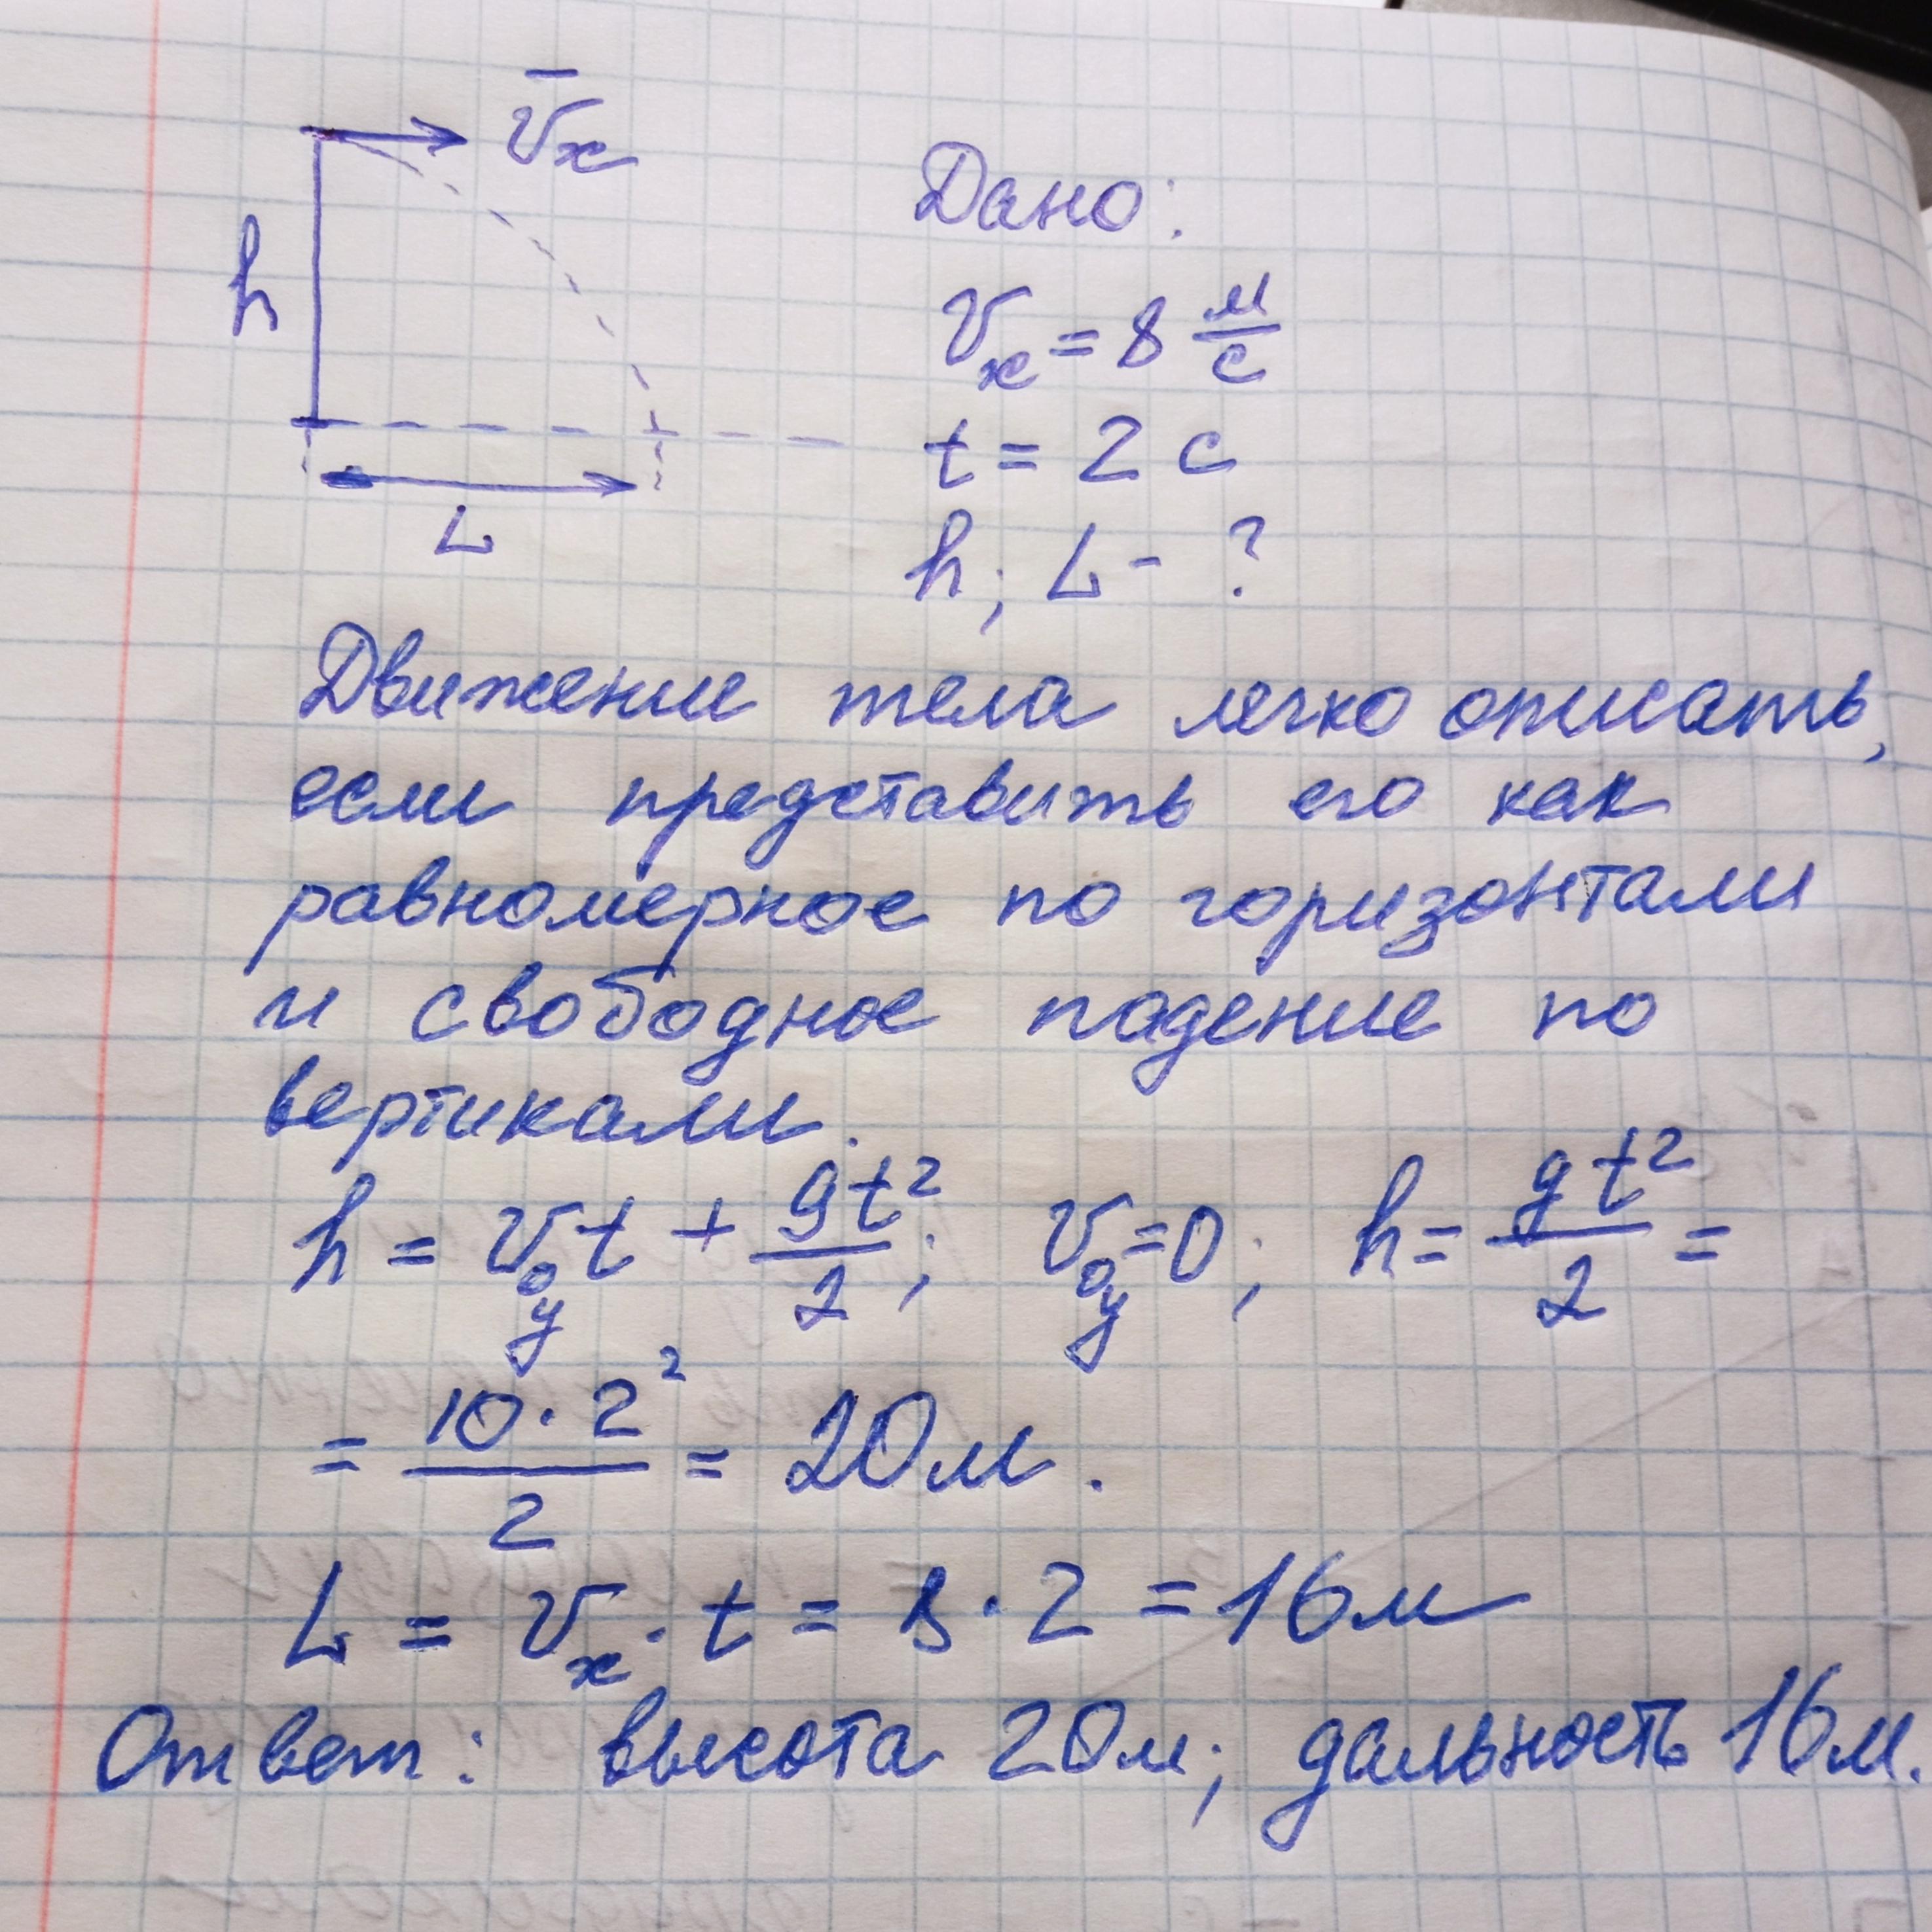 v̅ₓ
h
L
Дано:
vₓ = 8 м/с
t = 2 с
h; L - ?
Движение тела легко описать,
если представить его как
равномерное по горизонтали
и свободное падение по
вертикали.
h = v₀ᵧt + gt²/2; v₀ᵧ=0; h = gt²/2 =
= 10·2²/2 = 20м.
L = vₓ·t = 8·2 = 16м
Ответ: высота 20м; дальность 16м.